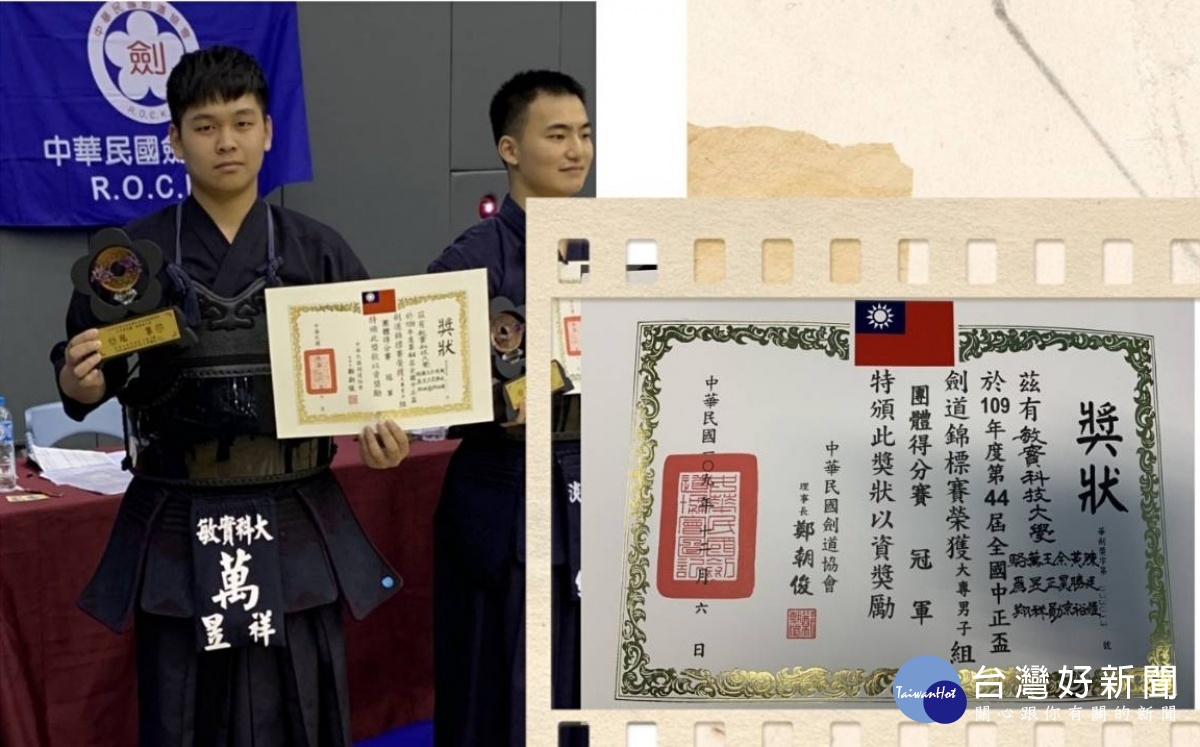 中華民國劍道協會
劍
R.O.C.K
中華民國劍
R.O.C.
冠軍
獎狀
敏實科大
萬
昱祥
獎狀
茲有敏實科技大學
於109年度第44屆全國中正盃
劍道錦標賽榮獲大專男子組
團體得分賽 冠軍
特頒此獎狀以資獎勵
中華民國劍道協會
理事長 鄭朝俊
中華民國一〇九年十二月六日
TaiwanHot
台灣好新聞
關心跟你有關的新聞